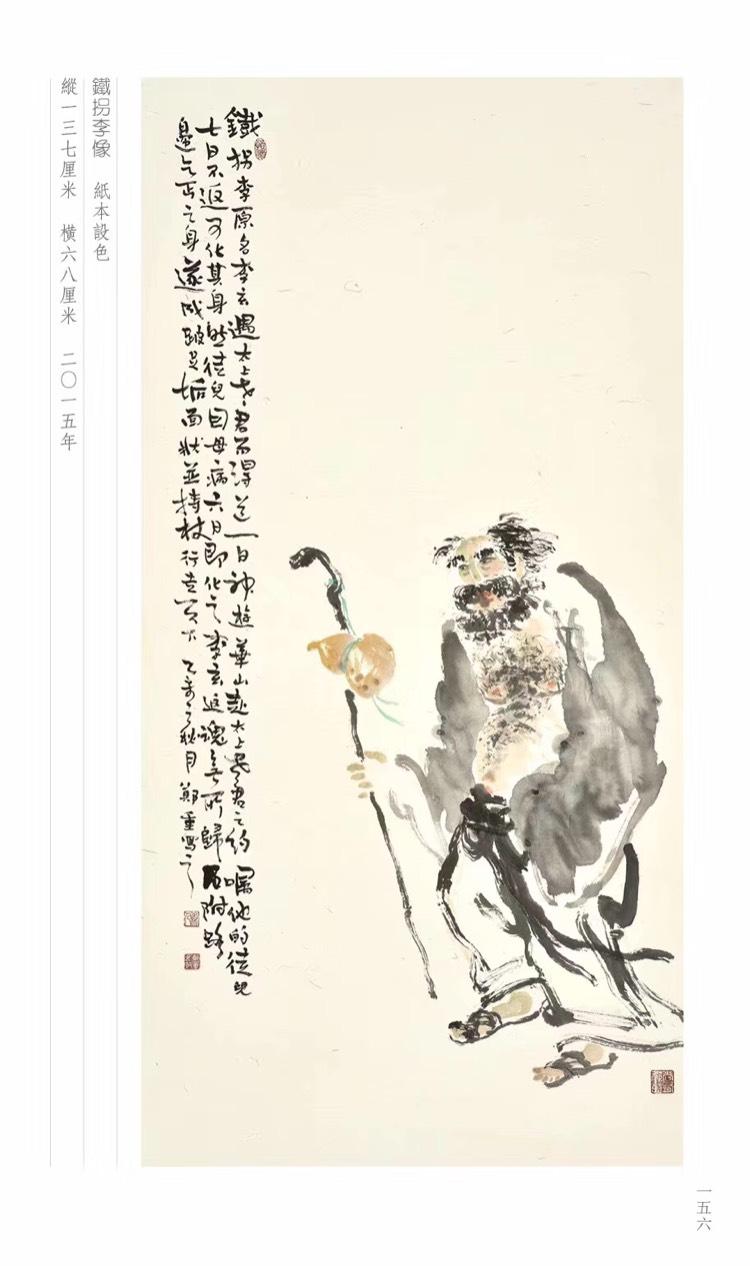 鐵拐李原名李玄遇太上老君而得道一日神遊華山赴太上老君之約囑他的徒兒
七日不返可化其身然徒兒因母病六日即化之李玄返魂無所歸附路
邊乞丐之身遂成跛足垢面狀並持杖行走天下 乙未之秋月鄭重寫之
鐵拐李像 紙本設色
縱一三七厘米 橫六八厘米 二〇一五年
一五六